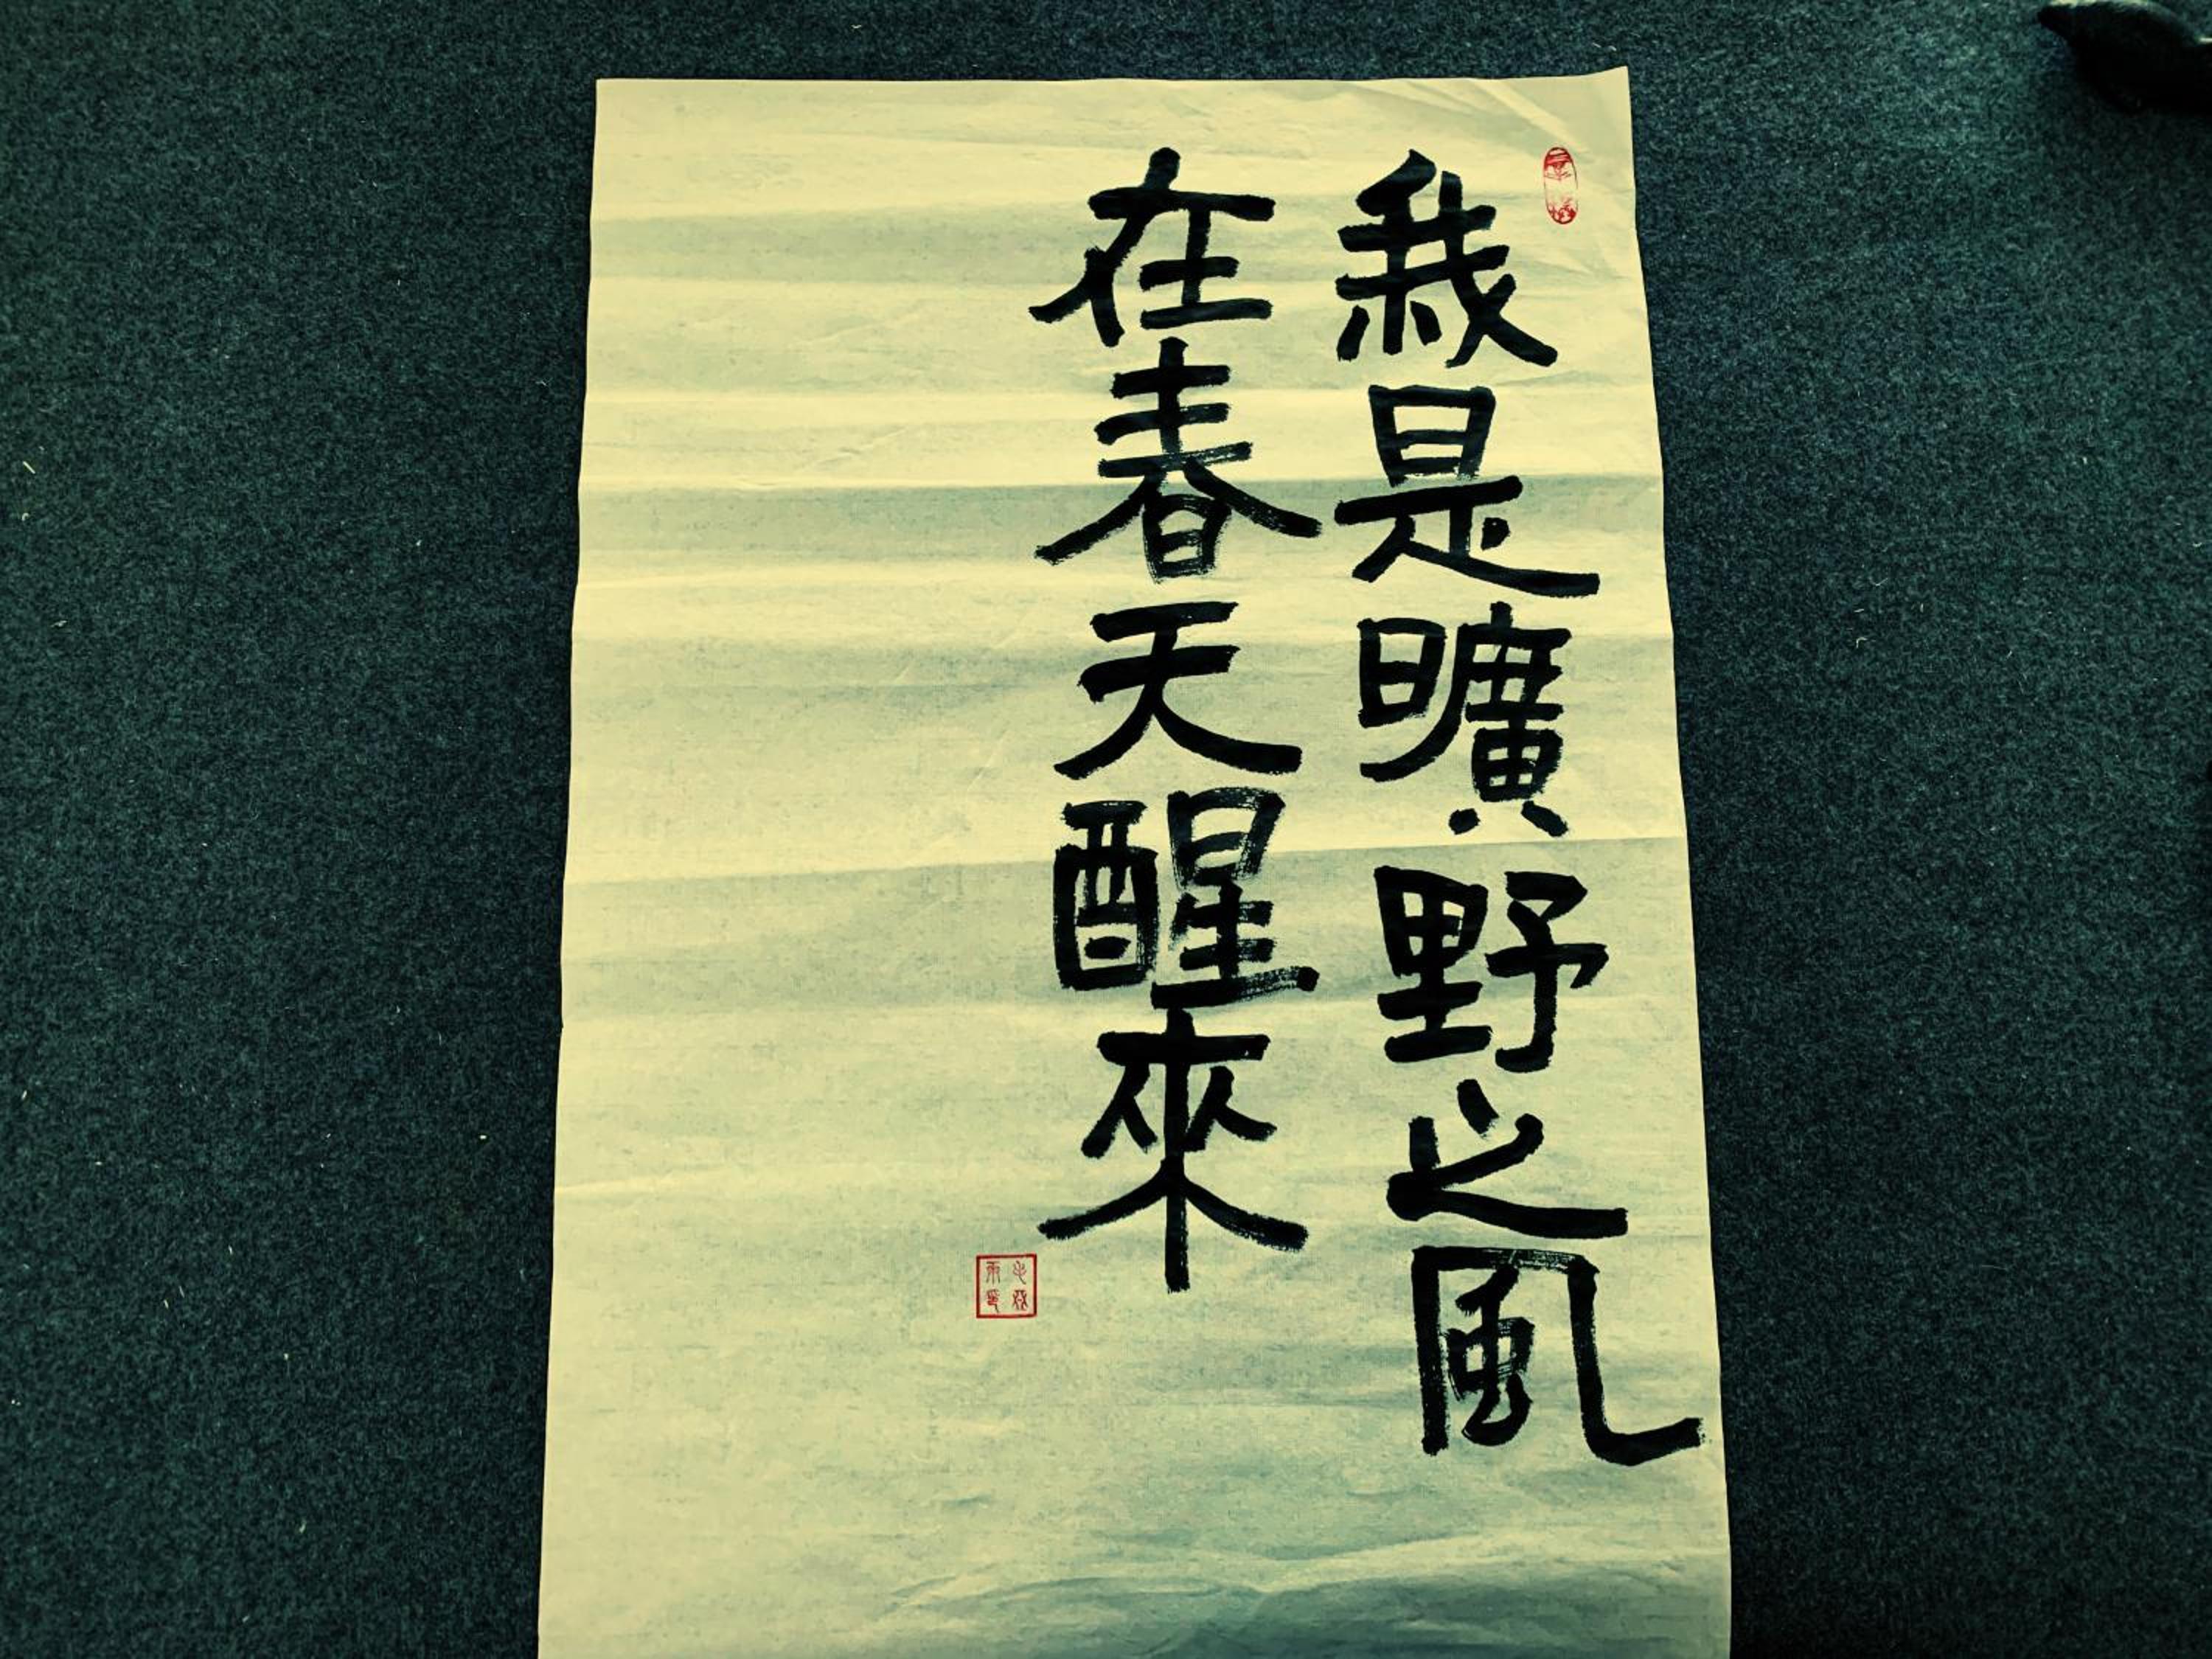 我是曠野之風
在春天醒來